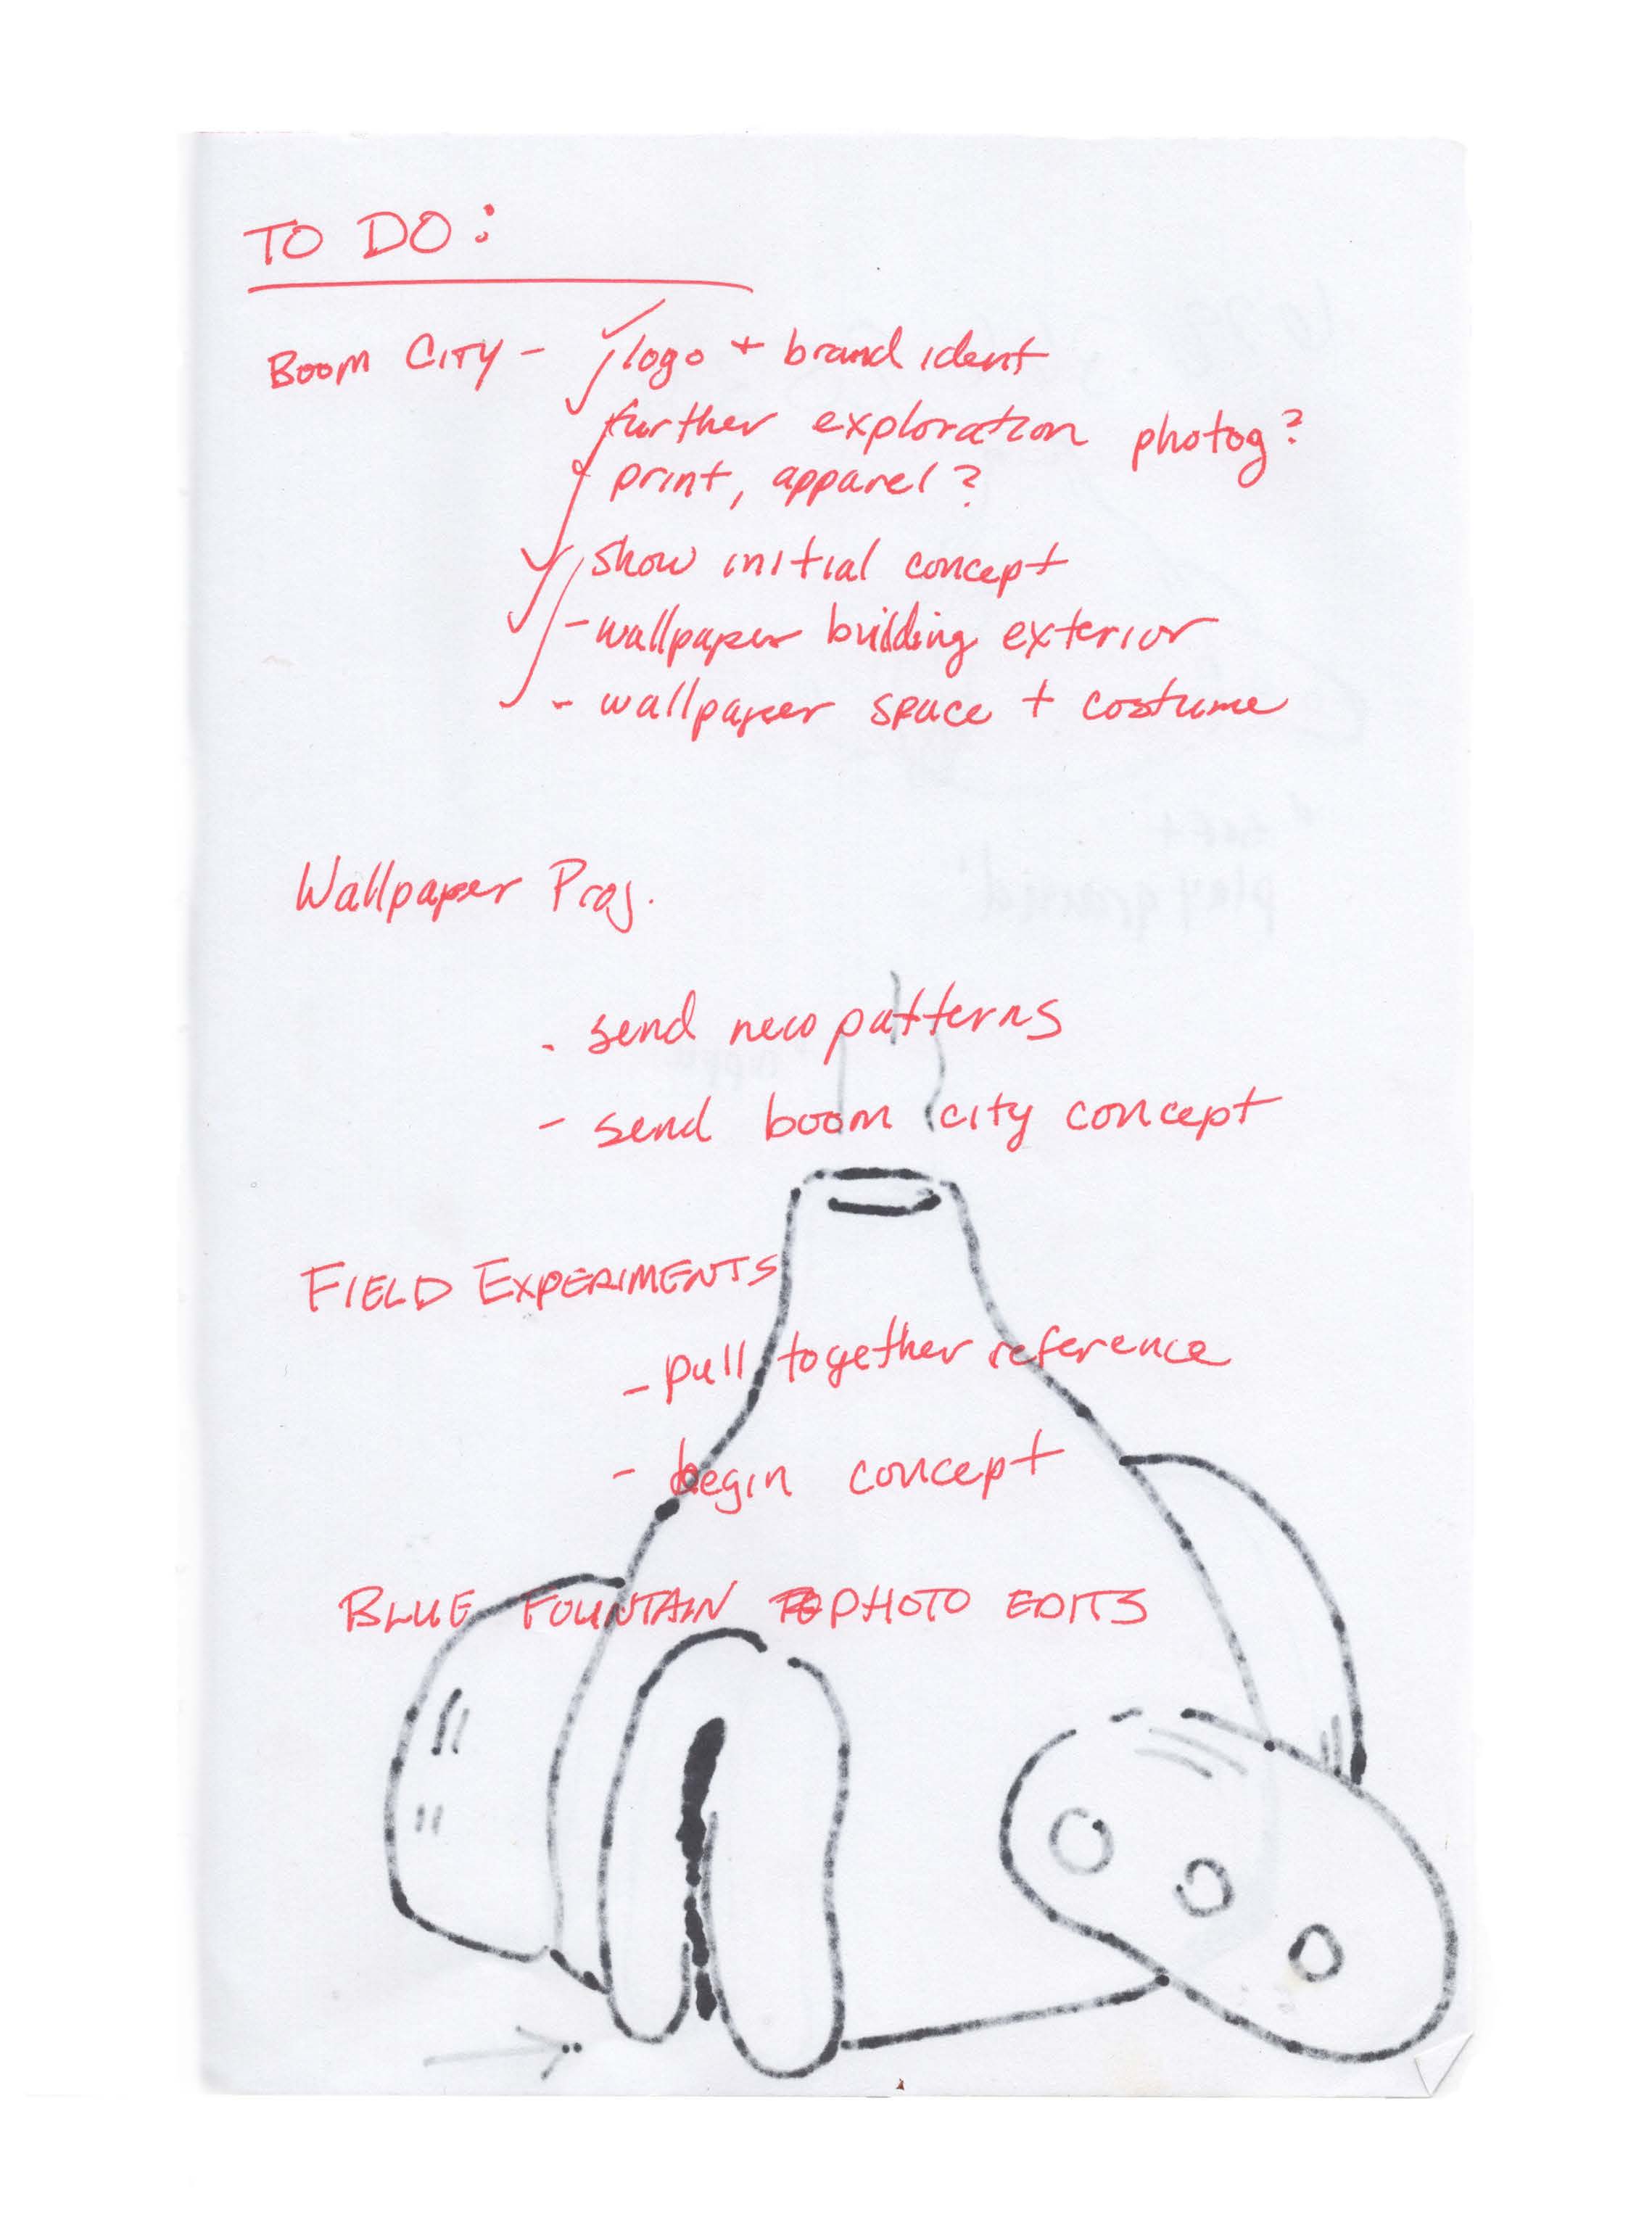 TO DO:
BOOM CITY - logo + brand ident
further exploration photog?
print, apparel?
show initial concept
- wallpaper building exterior
- wallpaper space + costume
Wallpaper Proj.
- send new patterns
- send boom city concept
FIELD EXPERIMENTS
- pull together reference
- begin concept
BLUE FOUNTAIN PHOTO EDITS